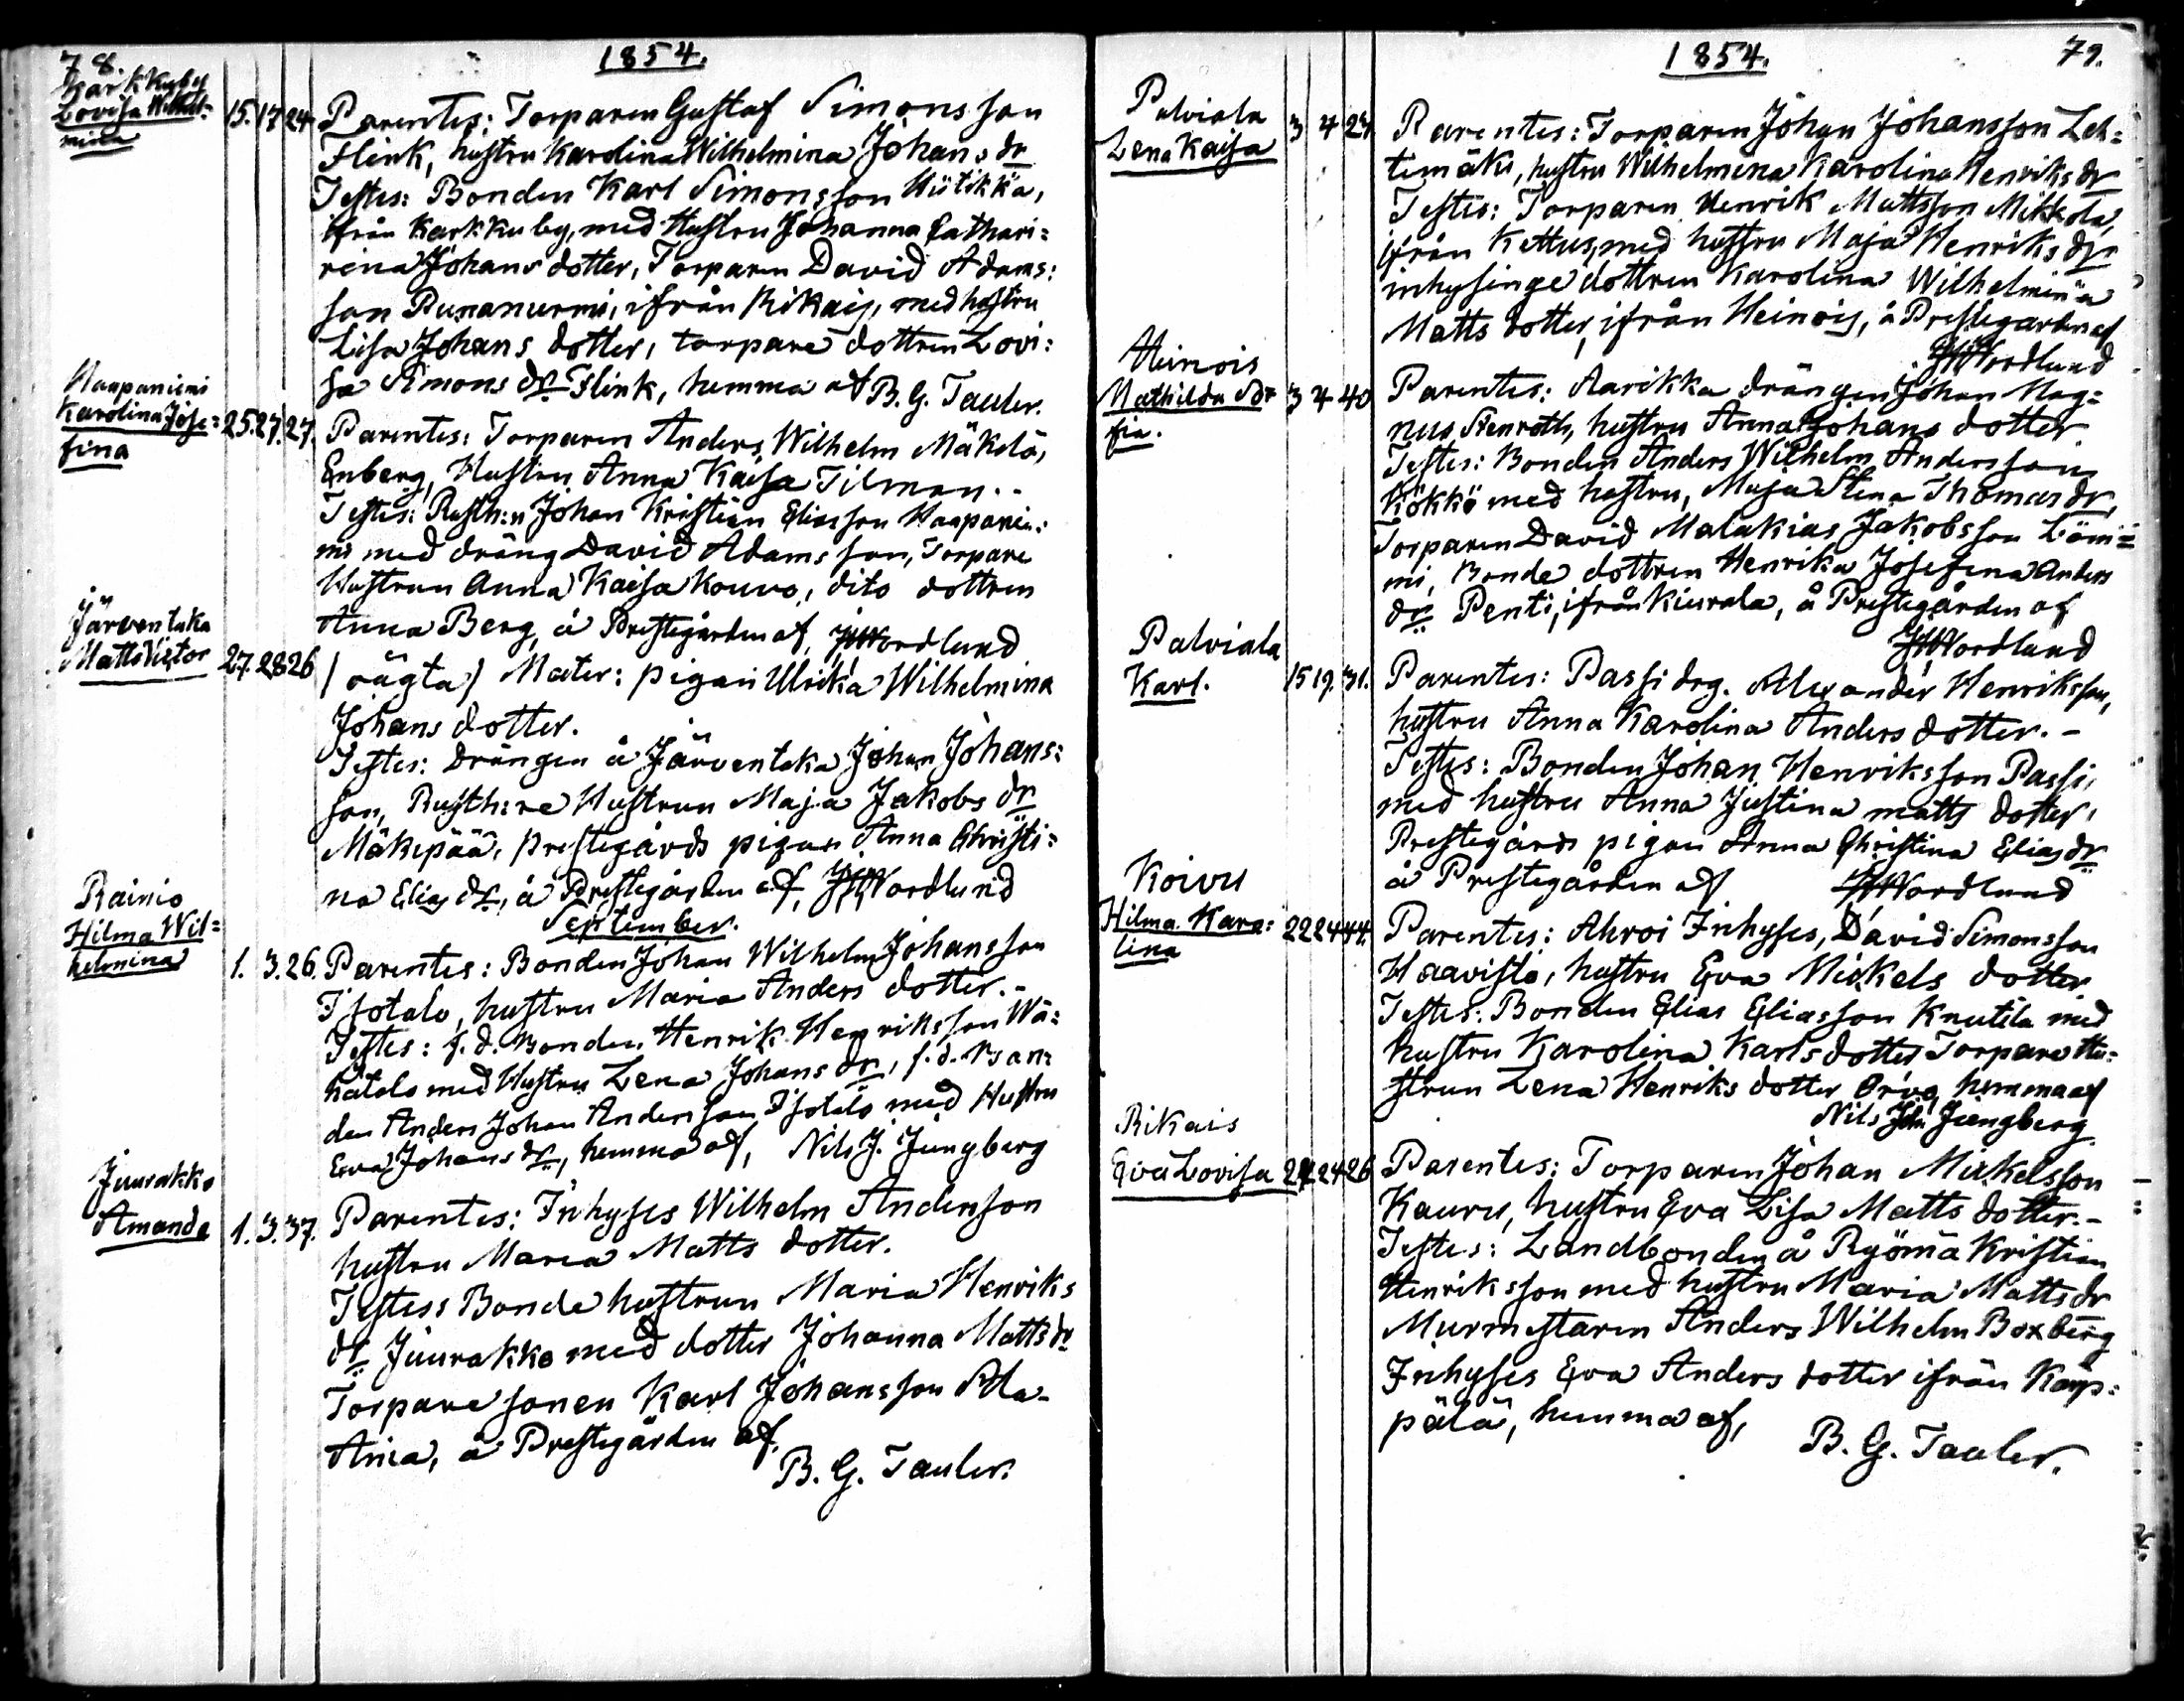 78.
1854.
Karkkuby
Lovisa Wilhel=
mina
15. 17 24.
Parentes: Torparen Gustaf Simonsson
Flink, hustru Karolina Wilhelmina Johans dr
Testes: Bonden Karl Simonsson Hiitikkä,
ifrån Karkkuby, med Hustru Johanna Cathari=
rina Johans dotter, Torparen David Adams=
son Punanurmi, ifrån Rikais, med hustru
Lisa Johans dotter, torpare dottren Lovi=
sa Simons dr Flink, hemma af B. G. Tauler.
Haapaniemi
Karolina Jose=
fina
25. 27. 27.
Parentes: Torparen Anders Wilhelm Mäkelä,
Enberg, Hustru Anna Kaisa Tilman.
Testes: Rusth:n Johan Kristian Eliasson Haapanie=
mi med dräng David Adamsson, Torpare
Hustrun Anna Kaisa Kouvo, dito dottren
Anna Berg, å Prestegården af, Nordlund
Järventaka
Matts Victor
27. 28 26
(oägta) Mater: pigan Ulrika Wilhelmina
Johans dotter.
Testes: Drängen å Järventaka Johan Johans=
son, Rusth:re Hustrun Maja Jakobs dr
Mäkipää, prestegårds pigan Anna Christi=
na Elias dr, å Prestegården af, Nordlund
September.
Rainio
Hilma Wil=
helmina
1. 3. 26.
Parentes: Bonden Johan Wilhelm Johansson
Isotalo, hustru Maria Anders dotter.-
Testes: f. d. Bonden Henrik Henriksson Wä=
hätalo med Hustru Lena Johans dr, f. d. Bon=
den Anders Johan Andersson Isotalo med Hustru
Eva Johans dr, hemma af, Nils J. Jungberg
Juurakko
Amanda
1. 3. 37.
Parentes: Inhyses Wilhelm Andersson
hustru Maria Matts dotter.
Testes: Bonde hustrun Maria Henriks
dr Juurakko med dotter Johanna Matts dr
Torpare sonen Karl Johansson Ala-
Ania, å Prestegården af,
B. G. Tauler.
1854.
79.
Palviala
Lena Kaisa
3 4 24
Parentes: Torparen Johan Johansson Leh=
temäki, hustru Wilhelmina Karolina Henriks dr
Testes: Torparen Henrik Mattsson Mikkola,
ifrån Kettus, med hustru Maja Henriks dr
inhysinge dottren Karolina Wilhelmina
Matts dotter, ifrån Heinois, å Prestegården af
Nordlund
Heinois
Mathilda So=
fia.
3 4 40
Parentes: Aarikka drängen Johan Mag=
nus Stenroth, hustru Anna Johans dotter.
Testes: Bonden Anders Wilhelm Andersson
Kökkö med hustru, Maja Stina Thomas dr,
Torparen David Malakias Jakobsson Lämi=
mi, Bonde dottren Henrika Josefina Anders
dr Penti, ifrån Kiurala, å Prestegården af
Nordlund
Palviala
Karl.
15 19. 31.
Parentes: Passi drg. Alexander Henriksson,
hustru Anna Karolina Anders dotter.-
Testes: Bonden Johan Henriksson Passi,
med hustru Anna Justina Matts dotter,
Prestegårds pigan Anna Christina Elias dr
å Prestegården af Nordlund
Koivu
Hilma Karo=
lina
22 24 44.
Parentes: Ahroi Inhyses, David Simonsson
Haavisto, hustru Eva Mickels dotter
Testes: Bonden Elias Eliasson Knutila med
hustru Karolina Karlsdotter Torpare Hu=
strun Lena Henriks dotter, hemma af
Nils Joh. Jungberg
Rikais
Eva Lovisa
24 24 26
Parentes: Torparen Johan Mickelsson
Kauru, hustru Eva Lisa Matts dotter.-
Testes: Landbonden å Ryömä Kristian
Henriksson med hustru Maria Matts dr
Murmestaren Anders Wilhelm Boxberg
Inhyses Eva Anders dotter ifrån Karp=
pälä, hemma af,
B. G. Tauler.